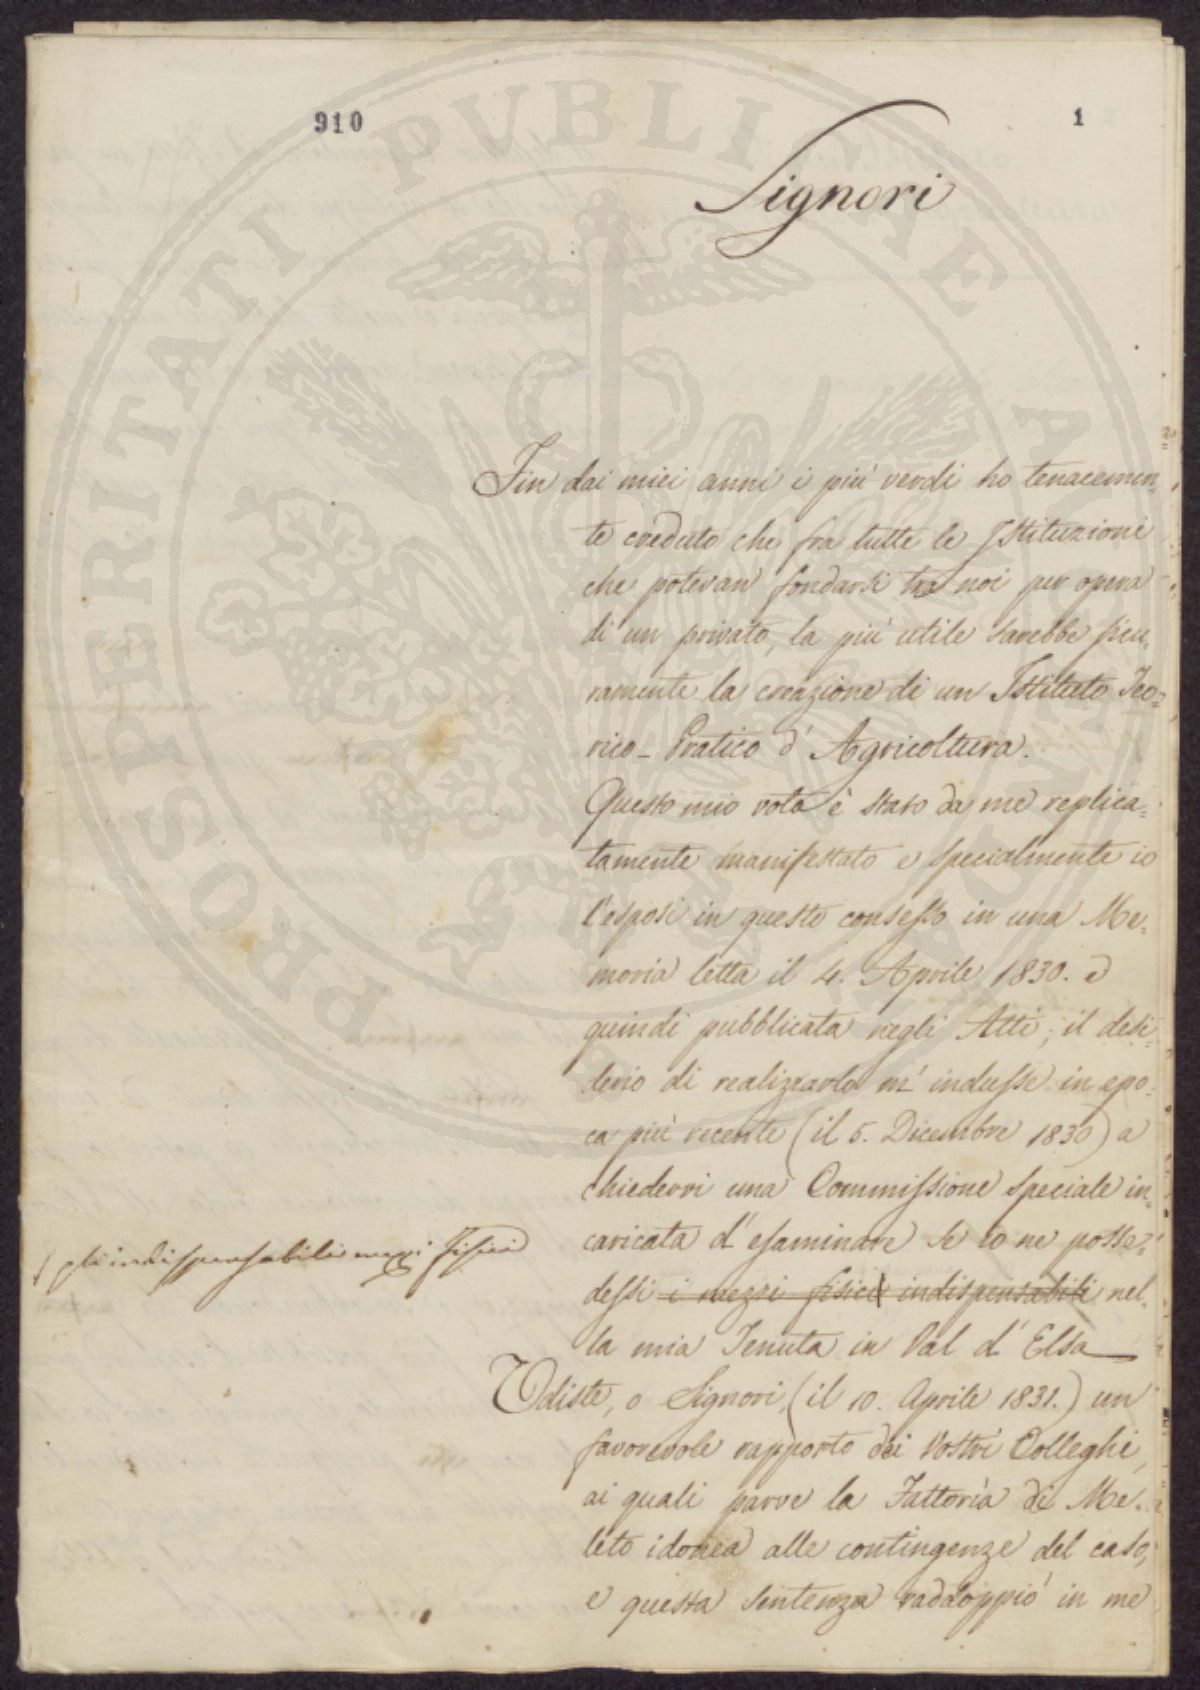 910
1
Signori
Fin dai miei anni i più verdi ho tenacemen
te creduto che fra tutte le Istituzioni
che potevan fondarsi tra noi per opera
di un privato, la più utile sarebbe sicu=
ramente la creazione di un Istituto Teo=
rico-Pratico d'Agricoltura.
Questo mio voto è stato da me replica=
tamente manifestato e specialmente io
l'esposi in questo consesso in una Me=
moria letta il 4. Aprile 1830. e
quindi pubblicata negli Atti; il desi=
derio di realizzarlo m'indusse in epo=
ca più recente (il 5. Dicembre 1830) a
chiedervi una Commissione speciale in=
caricata d'esaminare se io ne posse=
gli indispensabili mezzi fisici
dessi i mezzi fisici indispensabili nel=
la mia Tenuta in Val d'Elsa
Udiste, o Signori, (il 10. Aprile 1831.) un
favorevole rapporto dei Vostri Colleghi,
ai quali parve la Fattoria di Me=
leto idonea alle contingenze del caso,
e questa sentenza raddoppiò in me
PROSPERITATI PUBLICAE AUGENDAE